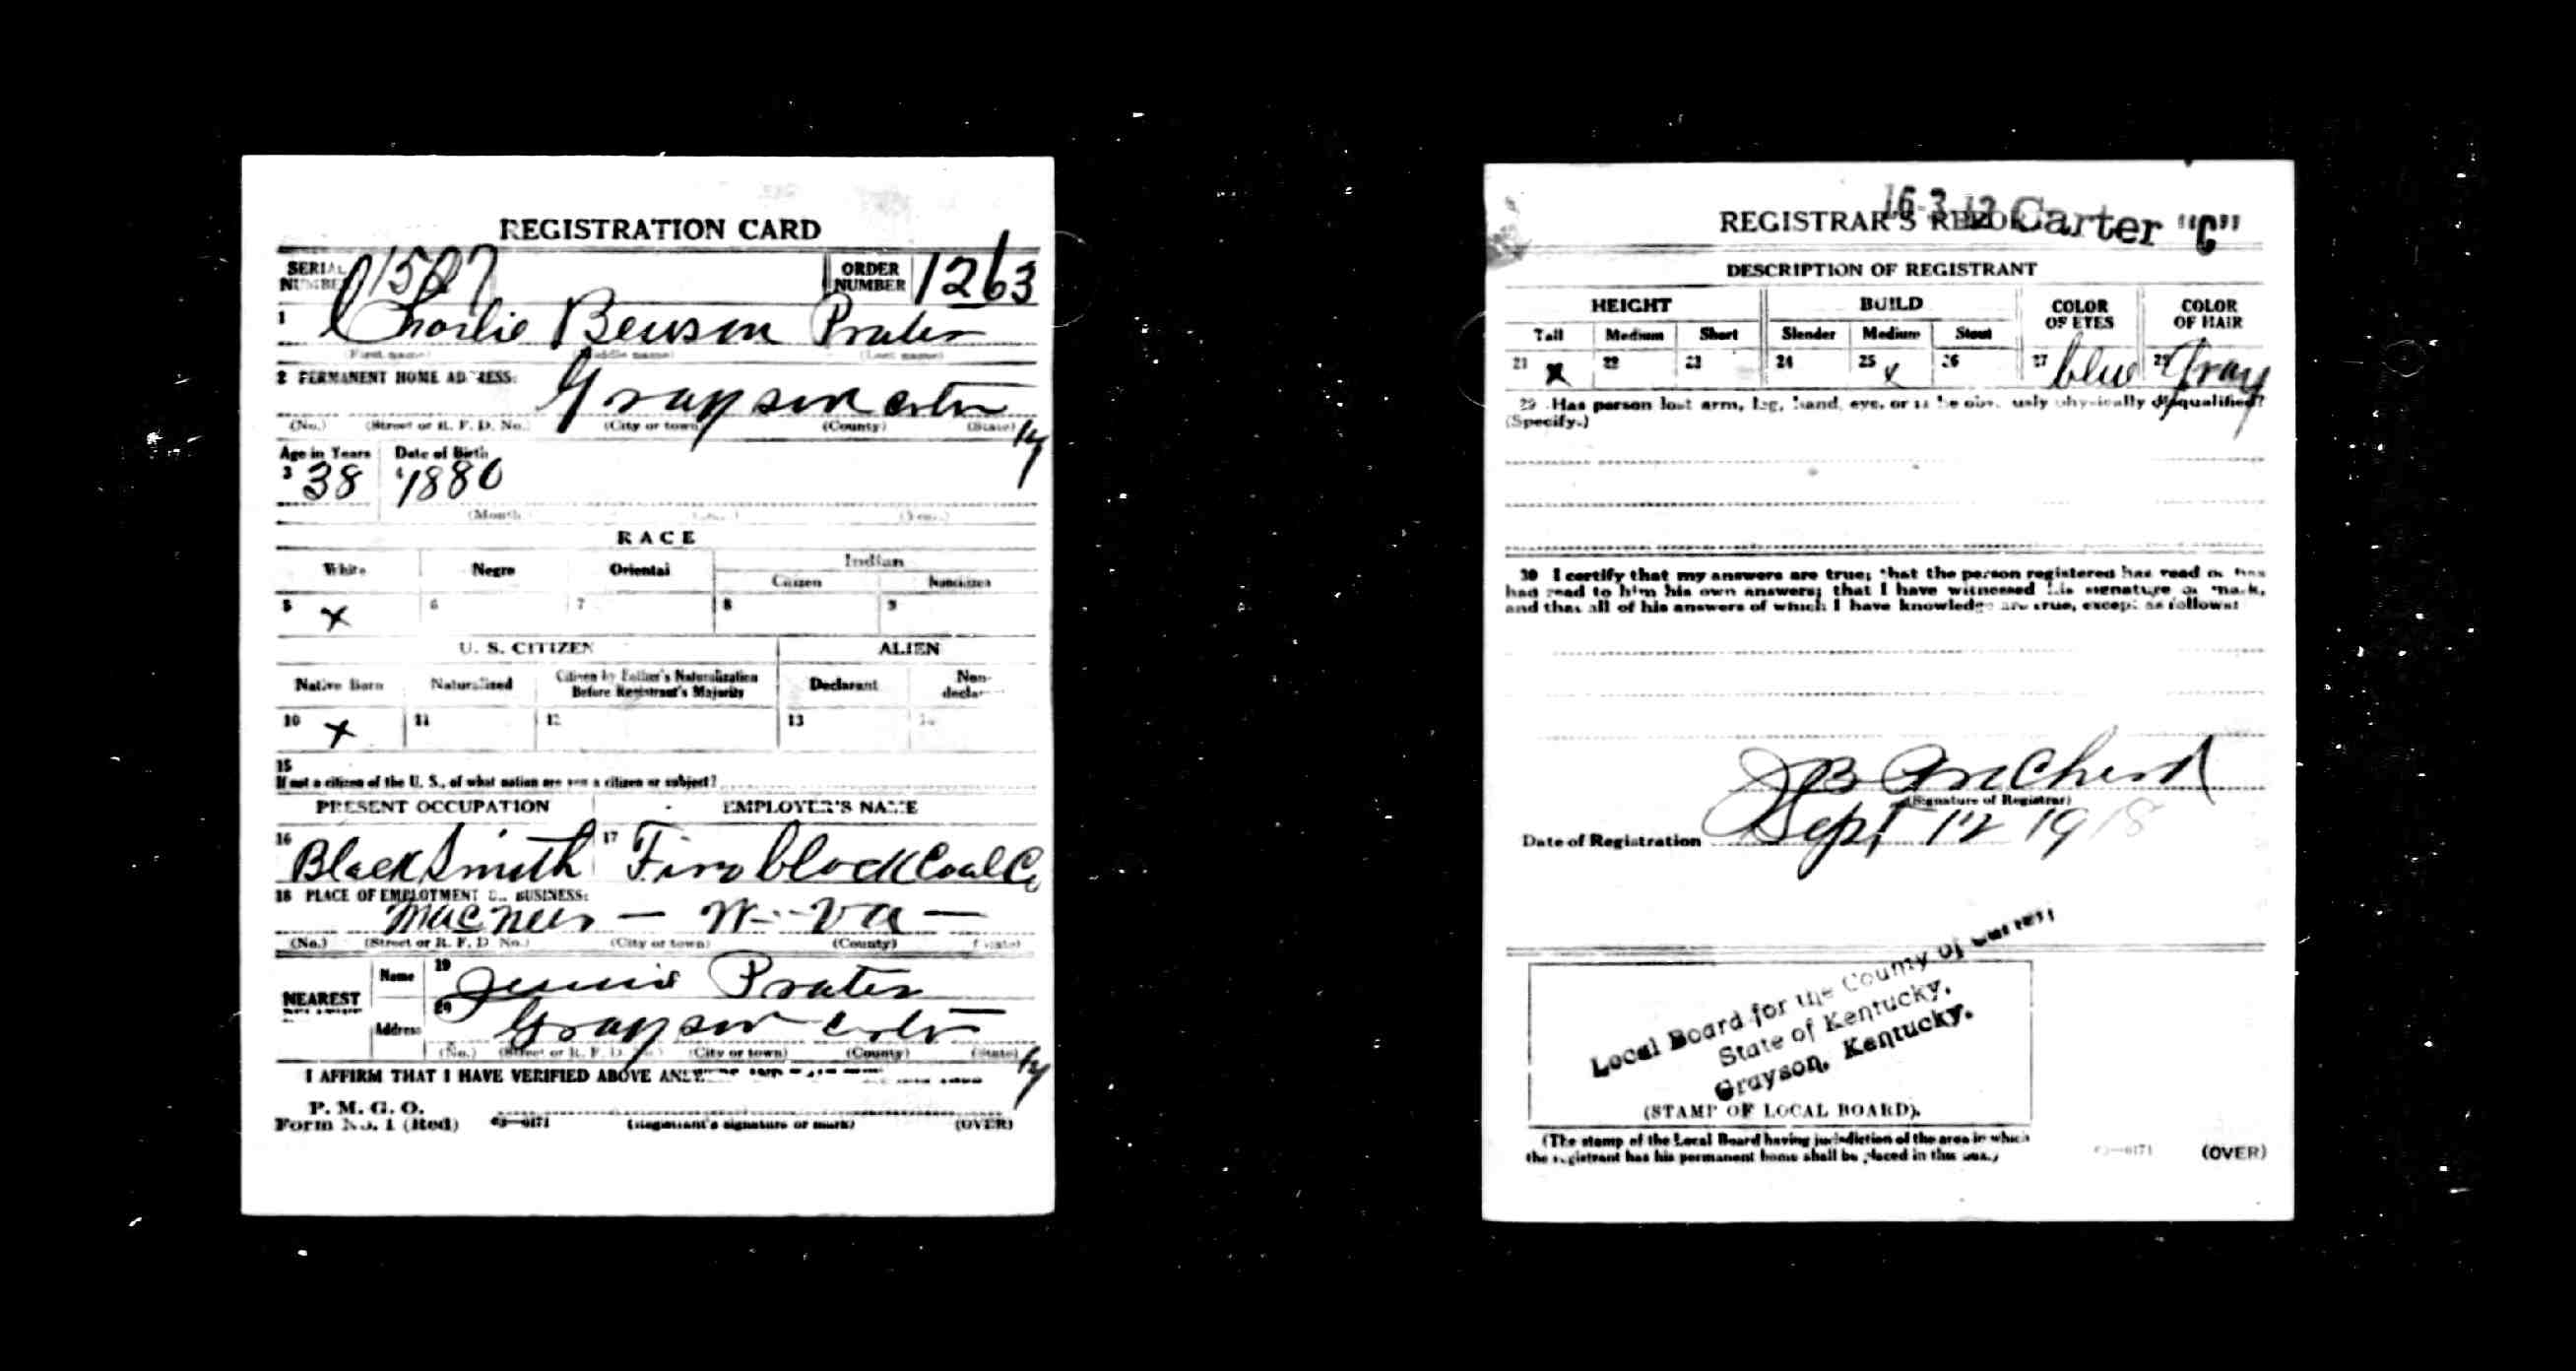 REGISTRATION CARD
SERIAL NUMBER 1507 ORDER NUMBER 1263
1 Charlie Benson Prater
(First name) (Middle name) (Last name)
2 PERMANENT HOME ADDRESS: Grayson Carter Ky
(No.) (Street or R. F. D. No.) (City or town) (County) (State)
Age in Years Date of Birth
3 38 4 1880
(Month) (Year)
RACE
White Negro Oriental Indian
Citizen Noncitizen
5 X 6 7 8 9
U. S. CITIZEN ALIEN
Native Born Naturalized Citizen by Father's Naturalization Before Registrant's Majority Declarant Non-declarant
10 X 11 12 13 14
15
If not a citizen of the U. S., of what nation are you a citizen or subject?
PRESENT OCCUPATION EMPLOYER'S NAME
16 BlackSmith 17 block Coal Co
18 PLACE OF EMPLOYMENT OR BUSINESS:
W. Va
(No.) (Street or R. F. D. No.) (City or town) (County) (State)
NEAREST Name 19 Jennie Prater
Address 20 Grayson Carter Ky
(No.) (Street or R. F. D. No.) (City or town) (County) (State)
I AFFIRM THAT I HAVE VERIFIED ABOVE
P. M. G. O.
Form No. 1 (Red) 03—6171 (Registrant's signature or mark) (OVER)
16-3-12 Carter "C"
REGISTRAR'S REPORT
DESCRIPTION OF REGISTRANT
HEIGHT BUILD COLOR OF EYES COLOR OF HAIR
Tall Medium Short Slender Medium Stout
21 X 22 23 24 25 x 26 27 blue 28 Gray
29 Has person lost arm, leg, hand, eye, or is he obviously physically disqualified?
(Specify.)
30 I certify that my answers are true; that the person registered has read or has
had read to him his own answers; that I have witnessed his signature or mark,
and that all of his answers of which I have knowledge are true, except as follows:
JB
(Signature of Registrar)
Date of Registration Sept 12 1918
Local Board for the County of Carter,
State of Kentucky,
Grayson, Kentucky.
(STAMP OF LOCAL BOARD).
(The stamp of the Local Board having jurisdiction of the area in which
the registrant has his permanent home shall be placed in this box.)
03—6171 (OVER)